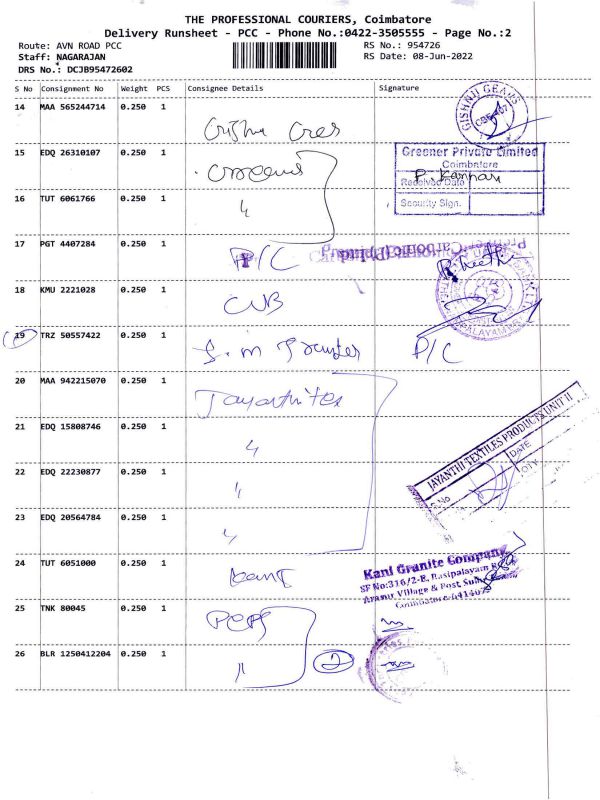 THE PROFESSIONAL COURIERS, Coimbatore
Delivery Runsheet - PCC - Phone No.:0422-3505555 - Page No.:2
Route: AVN ROAD PCC
RS No.: 954726
Staff: NAGARAJAN
RS Date: 08-Jun-2022
DRS No.: DCJB95472602
S No Consignment No Weight PCS Consignee Details Signature
14 MAA 565244714 0.250 1
GISHNJI GEARS
15 EDQ 26310107 0.250 1
Greener Private Limited
Coimbatore
P. Kannan
Received Date
16 TUT 6061766 0.250 1 〃
Security Sign.
17 PGT 4407284 0.250 1 P/C
18 KMU 2221028 0.250 1 CUB
19 TRZ 50557422 0.250 1 P/C
20 MAA 942215070 0.250 1 Jayanthi Tex
21 EDQ 15808746 0.250 1 〃
JAYANTHI TEXTILES PRODUCTS UNIT II
S.No
DATE
QTY.
22 EDQ 22230877 0.250 1 〃
23 EDQ 20564784 0.250 1 〃
24 TUT 6051000 0.250 1
Kani Granite Company
SF No:316/2-B, Rasipalayam
Arasur Village & Post
Coimbatore-641407
25 TNK 80045 0.250 1
26 BLR 1250412204 0.250 1 〃 2